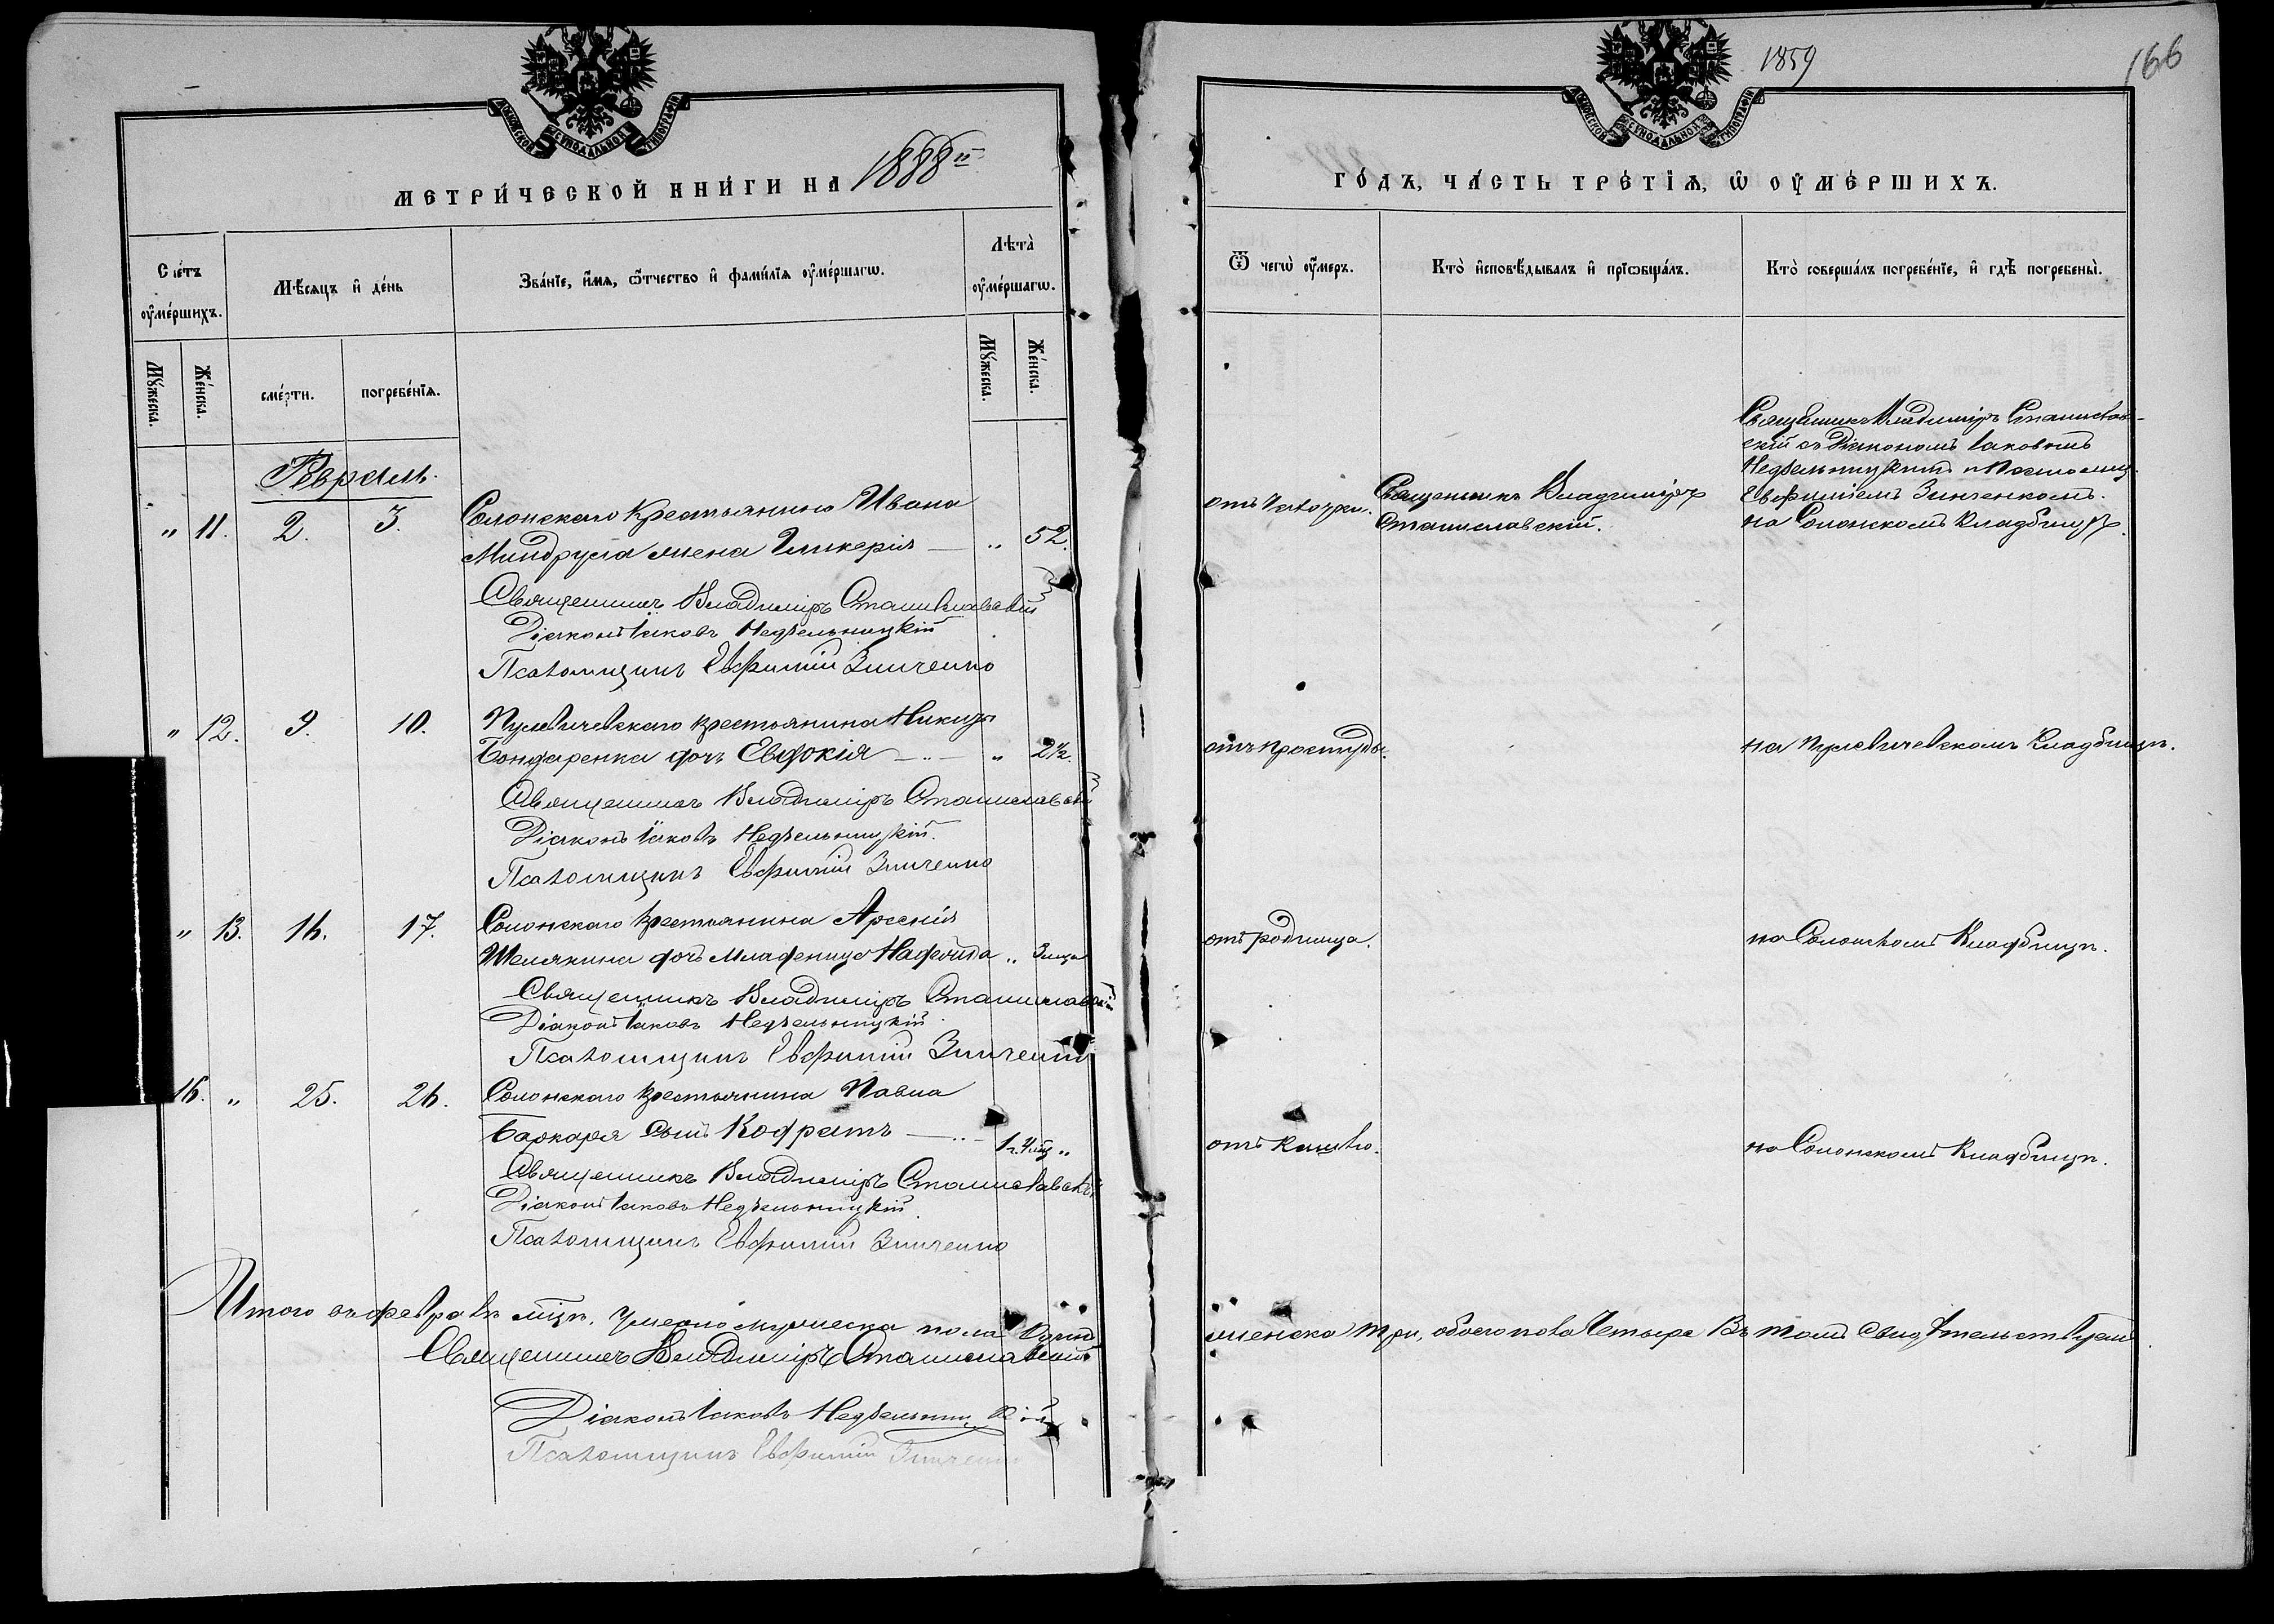 1859
166
МОСКОВСКОЙ СУНОДАЛЬНОЙ ТИПОГРАФІИ
МОСКОВСКОЙ СУНОДАЛЬНОЙ ТИПОГРАФІИ
МЕТРИ́ЧЕСКОЙ КНИ́ГИ НА 1888й
ГО́ДЪ, ЧА́СТЬ ТРЕ́ТІѦ, Ѡ҆ ОУ҆МЕ́РШИХЪ.
Сче́тъ оу҆ме́ршихъ.
Мѣ́сяцъ и҆ де́нь
Зва́нїе, и҆́мѧ, ѻ҆́тчество и҆ фамилїѧ оу҆ме́ршагѡ.
Лѣта̀ оу҆ме́ршагѡ.
Ѿ чегѡ̀ оу҆́меръ.
Кто̀ и҆сповѣ́дывалъ и҆ прїѡбща́лъ.
Кто̀ соверша́лъ погребе́нїе, и҆ гдѣ̀ погребены̀.
Мꙋ́жеска.
Же́нска.
сме́рти.
погребе́нїѧ.
Мꙋ́жеска.
Же́нска.
Февраль.
" 11. 2. 3. Солонскаго крестьянина Ивана
Миндрула жена Гликерія — " 52.
отъ чахотки.
Священникъ Владиміръ
Станиславскій.
Священникъ Владиміръ Станислав-
скій съ Діакономъ Іаковомъ
Недѣльницкимъ и Псаломщ.
Евфиміемъ Зинченкомъ.
на Солонскомъ кладбищѣ.
Священникъ Владиміръ Станиславскій
Діаконъ Іаковъ Недѣльницкій
Псаломщикъ Евфимій Зинченко
" 12. 9. 10. крестьянина Никиты
Бондаренка дочь Евдокія — " — " 2½.
отъ простуды.
на кладбищѣ.
Священникъ Владиміръ Станиславскій
Діаконъ Іаковъ Недѣльницкій.
Псаломщикъ Евфимій Зинченко
" 13. 16. 17. Солонскаго крестьянина Арсенія
дочь младеница " 3 мца
отъ родимца.
на Солонскомъ кладбищѣ.
Священникъ Владиміръ Станиславскій
Діаконъ Іаковъ Недѣльницкій.
Псаломщикъ Евфимій Зинченко
16. " 25. 26. Солонскаго крестьянина Павла
Баркаря сынъ Кодратъ — " — 1 г. 4 мц "
отъ кашлю.
на Солонскомъ кладбищѣ.
Священникъ Владиміръ Станиславскій
Діаконъ Іаковъ Недѣльницкій.
Псаломщикъ Евфимій Зинченко
Итого въ февралѣ мцѣ. умерло мужеска пола одинъ
женска три, обоего пола четыре Въ томъ свидѣтельствуемъ.
Священникъ Владиміръ Станиславскій
Діаконъ Іаковъ Недѣльницкій
Псаломщикъ Евфимій Зинченко